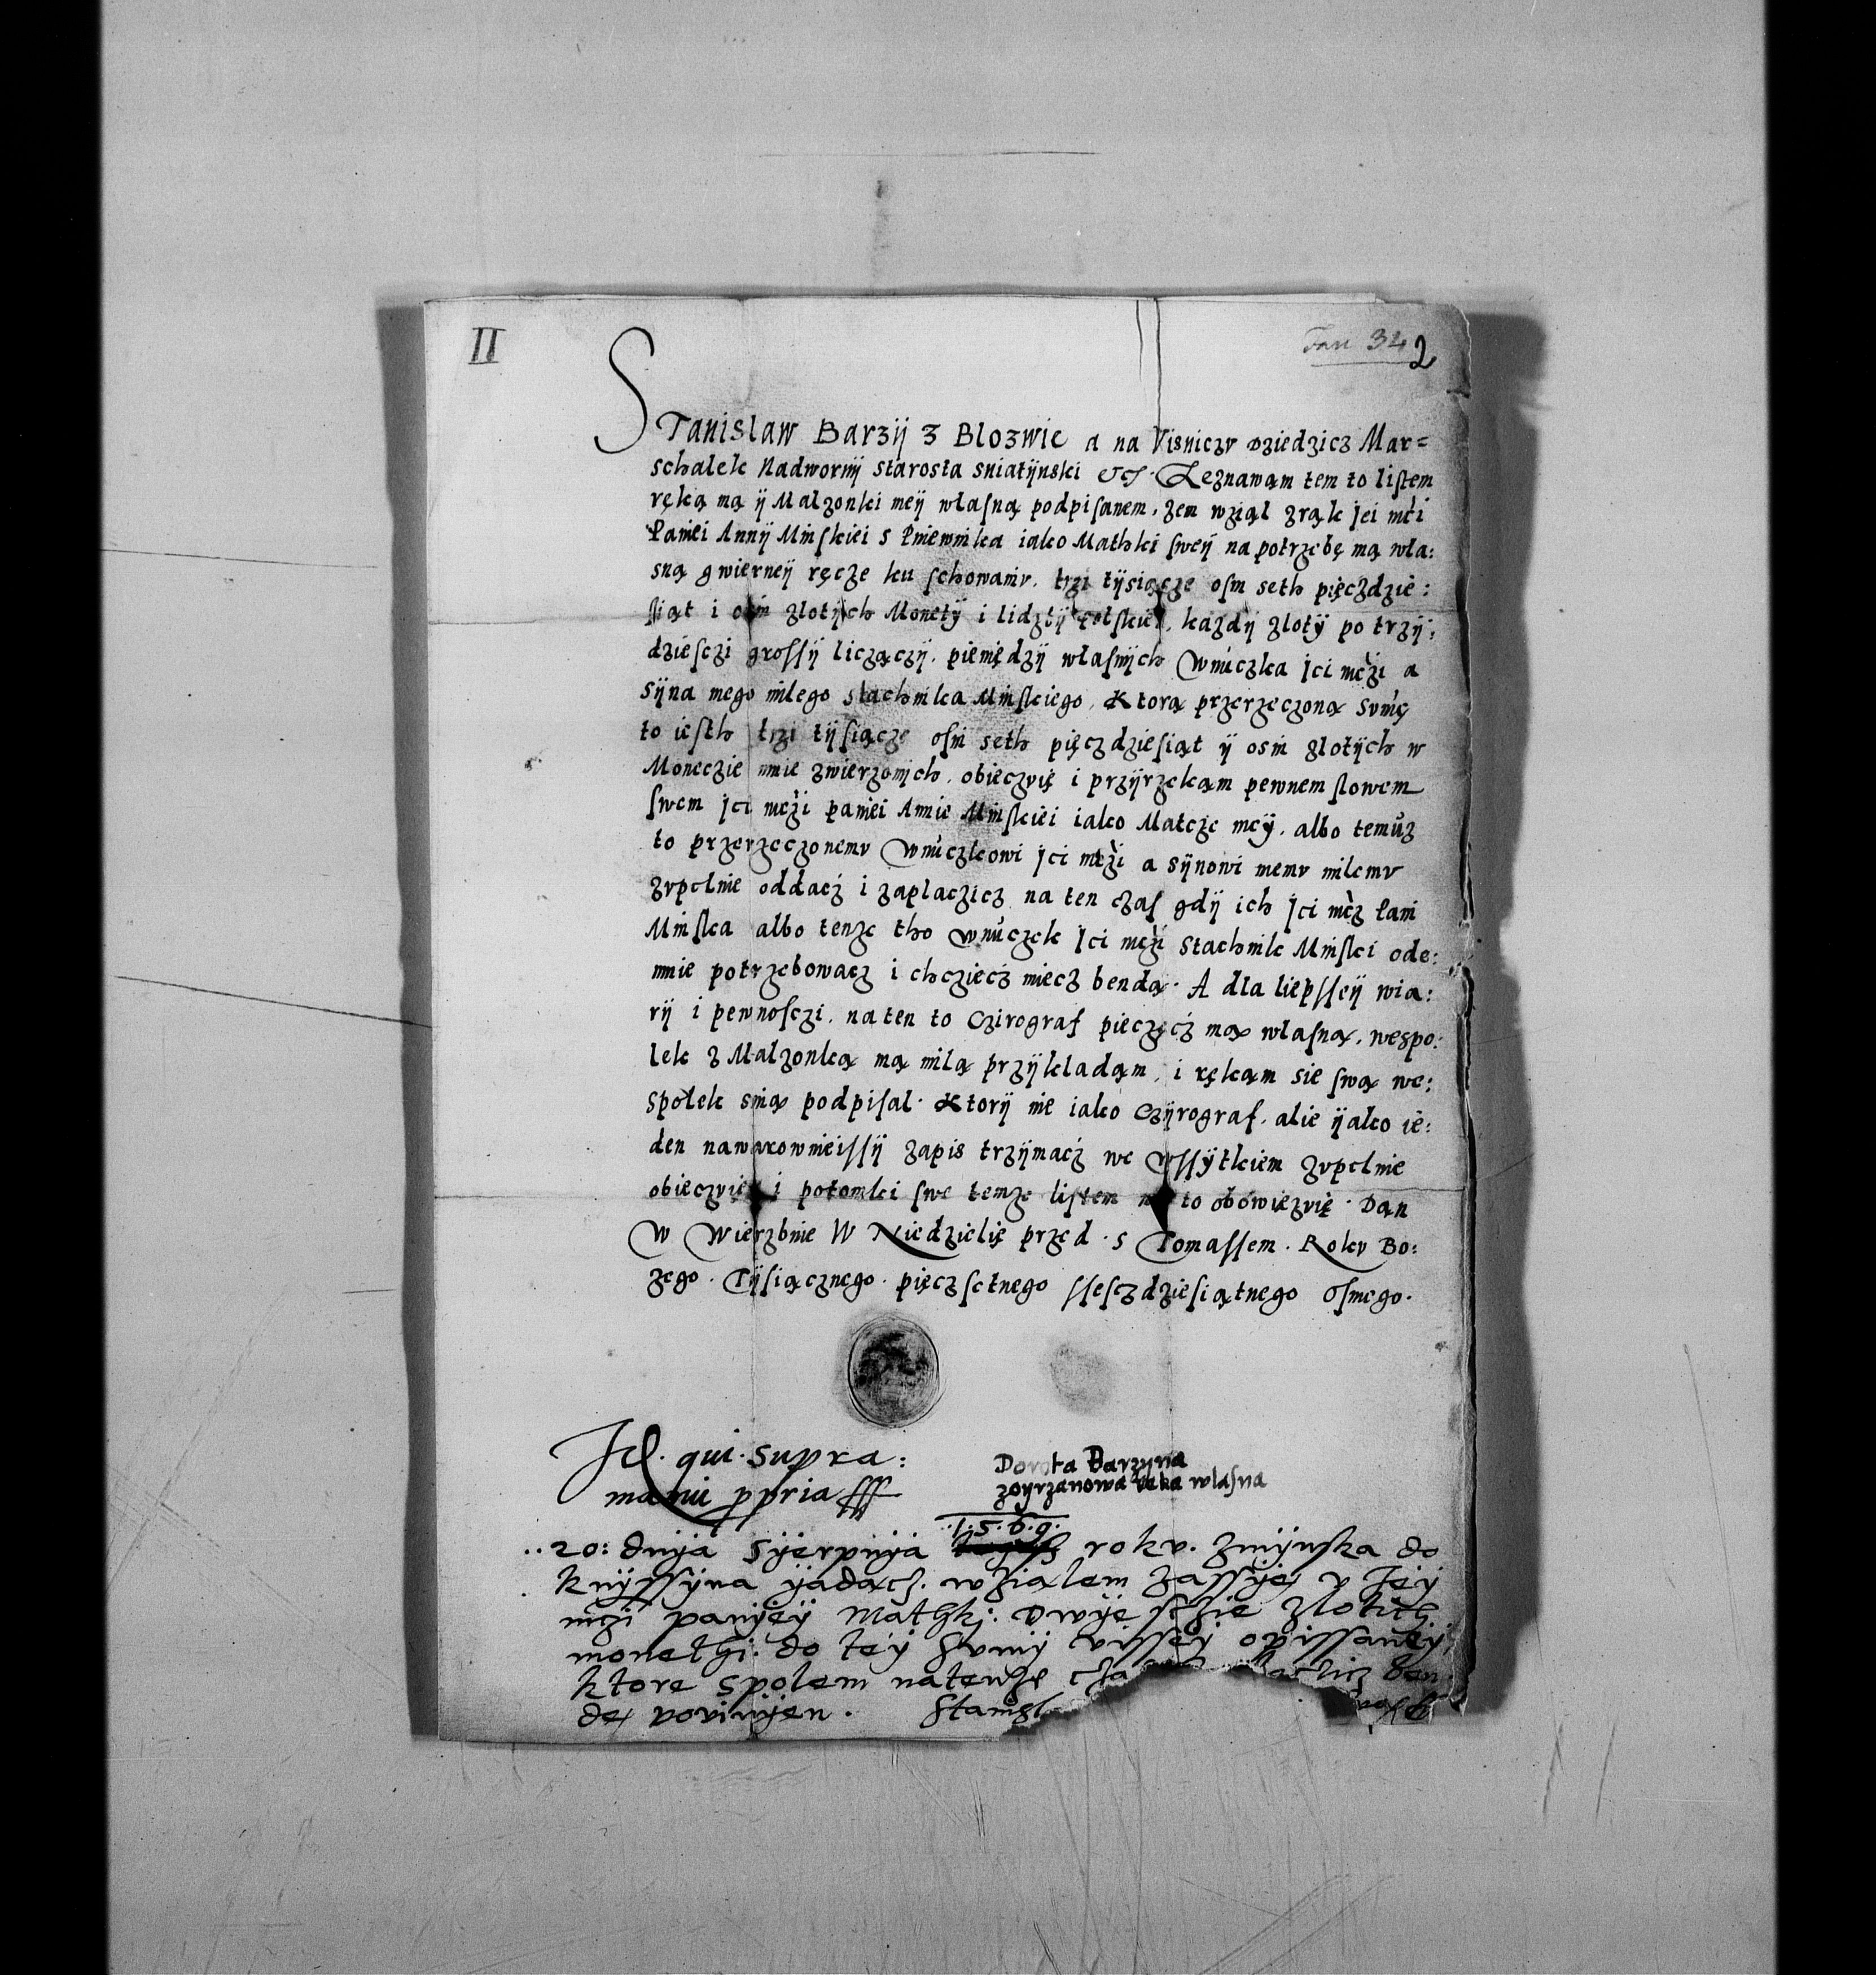 II
Fau 34 2
Stanislaw Barzÿ z Blozwic a na Visniczv dziedzicz Mar=
schalek Nadwornÿ starosta sniatÿnski Zeznawam tem to listem
ręką mą ÿ Malzonki meÿ własną podpisanem, zem wziąl zrąk Jei mći
Paniei Annÿ Minskiei s Pniewnika iako Mathki sweÿ na potrzebę mą wła:
sną gwierneÿ ręcze ku schowaniv. trzi tÿsiącze osm seth pięczdzie:
siąt i osm zlotÿch Monetÿ i lidzbÿ Polskiei, kazdÿ zlotÿ po trzÿ:
dziesczi grossÿ liczączÿ. pieniędzÿ własnÿch Wnuczka Jei mczi a
Sÿna mego milego Stachnika Minskiego. Ktorą przerzeczoną Svmę
to iesth trzi tÿsiącze osm seth pięczdziesiąt ÿ osm zlotÿch w
Moneczie mnie zwierzonich. obieczvię i przÿrzekam pewnem slowem
swem Jei mczi paniei Annie Minskiei iako Matcze meÿ. albo temuz
to przerzeczonemv Wnuczkowi Jei mczi a sÿnowi memv milemv
zvpelnie oddacz i zaplaczicz na ten czas gdÿ ich Jei mcz Pani
Minska albo tenze tho wnuczek Jei mczi Stachnik Minski ode:
mnie potrzebowacz i chcziecz miecz bendą. A dla liepsseÿ wia:
rÿ i pewnosczi. na ten to Czirograf pieczęcz mą własną, wespo:
lek z Malzonką mą milą przÿkladam, i ręką sie swą we:
spolek snią podpisal. Ktorÿ nie iako Czÿrograf. alie ÿako ie:
den nawarownieissÿ zapis trzÿmacz we wssÿtkiem zvpelnie
obieczvię i potomki swe temze listem na to obowięzvię. Dan
W Wierzbnie W Niedzielię przed. s Tomassem. Rokv Bo:
zego. Tÿsiącznego. pięczsetnego ssesczdziesiątnego Osmego.
Id. qui supra:
manu ppria
Dorota Barzyna
zoyrzanowa reka wlasna
.1.5.6.9.
..20: dnÿa Sÿerpnÿa rokv. zmÿnska do
knÿssÿna ÿadącz. wzialem zassÿę v Jeÿ
mczi panÿeÿ Mathki: Dwÿe sczie zlotich
monethi: do teÿ Svmÿ visseÿ opissaneÿ
ktore spolem natenze cza ben
dę povinÿen. Stanisl